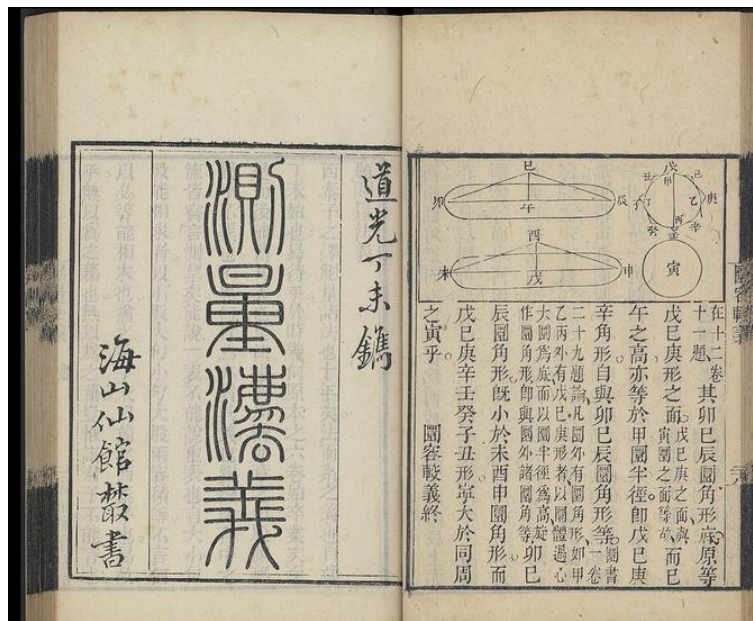 巳
卯
午
辰
酉
未
戌
申
戊
甲
丑
己
子
丁
乙
庚
丙
癸
辛
壬
寅
在十二卷
十一題
其卯巳辰圜角形底原等
戊己庚形之面
戊己庚之面與
寅圜之面等故
而巳
午之高亦等於甲圜半徑卽戊己庚
辛角形自與卯巳辰圜角形等
圜書
一卷
二十九題論凡圜外有圜角形如甲
乙丙外有戊己庚形者以圜體過心
大圜爲底而以圜半徑爲高旋
作圜角形卽與圜外諸圜角等
卯巳
辰圜角形旣小於未酉申圜角形而
戊己庚辛壬癸子丑形寧大於同周
之寅乎。 圜容較義終
道光丁未鐫
測量灋義
海山仙館叢書